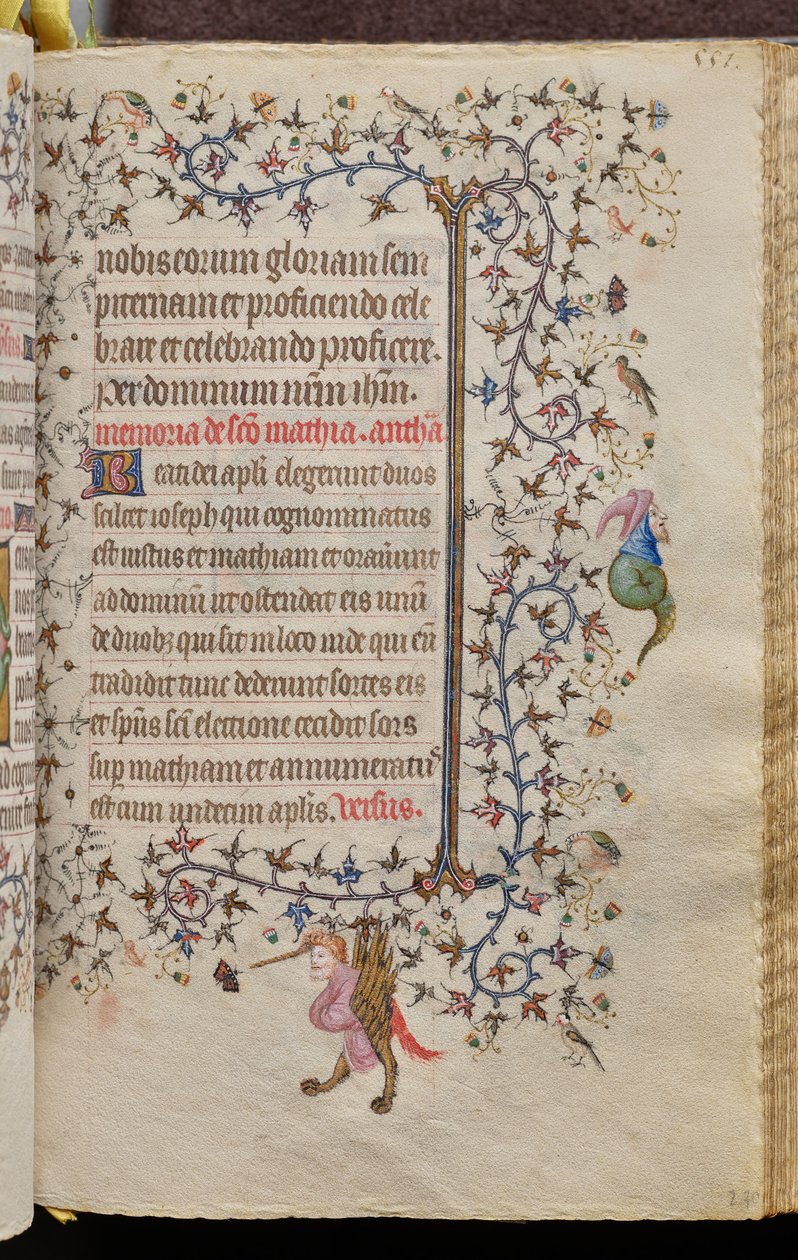 551.
nobis eorum gloriam sem
piternam et proficiendo cele
brare et celebrando proficere.
Per dominum nrm̄ ihm̄.
memoria de scō mathia. antha̅
Beati dei apl̄i elegerunt duos
scilcet ioseph qui cognominatus
est iustus et mathiam et orauerunt
ad dominū ut ostendat eis unū
de duobꝫ qui sit in loco inde qui eū
tradidit tunc dederunt sortes eis
et sp̄us sc̄i electione cecidit sors
sup mathiam et annumeratus
est cum undecim apl̄is. Versus.
270